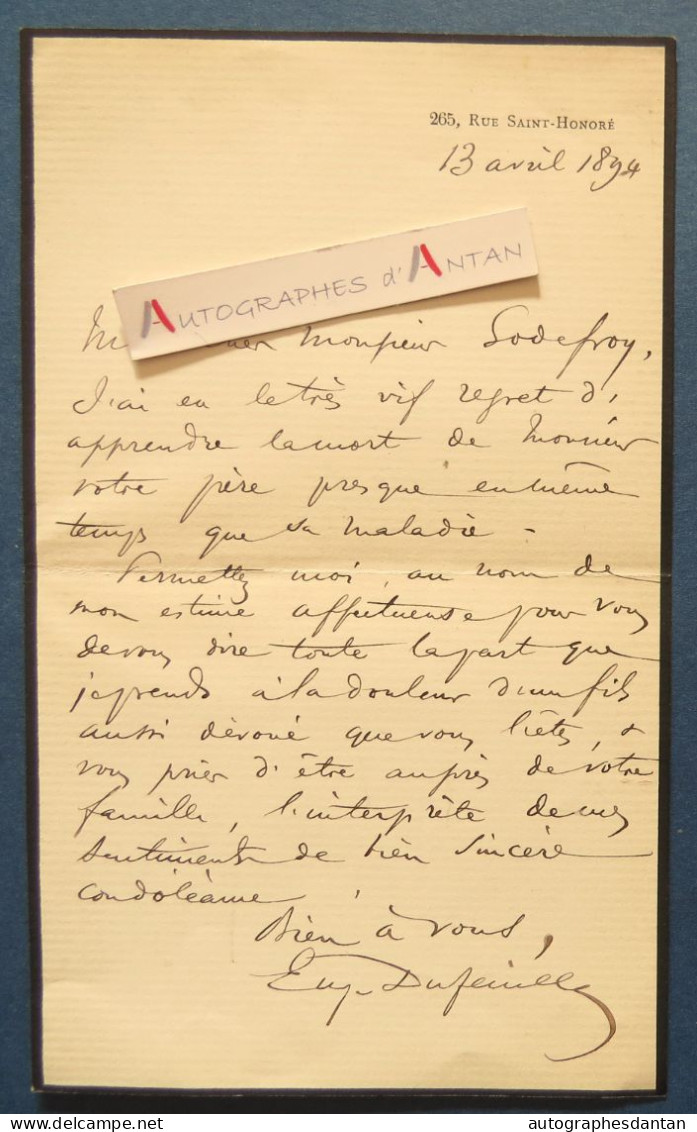 265, Rue Saint-Honoré
13 avril 1894
AUTOGRAPHES d'ANTAN
Monsieur Godefroy,
J'ai eu le très vif regret d'
apprendre la mort de Monsieur
votre père presque en même
temps que sa maladie -
Permettez moi, au nom de
mon estime affectueuse pour vous
de vous dire toute la part que
je prends à la douleur d'un fils
aussi dévoué que vous l'êtes, &
vous prier d'être auprès de votre
famille, l'interprète de mes
sentiments de bien sincère
condoléance.
Bien à vous,
Eug. Dufeuille
delcampe.net
autographesdantan